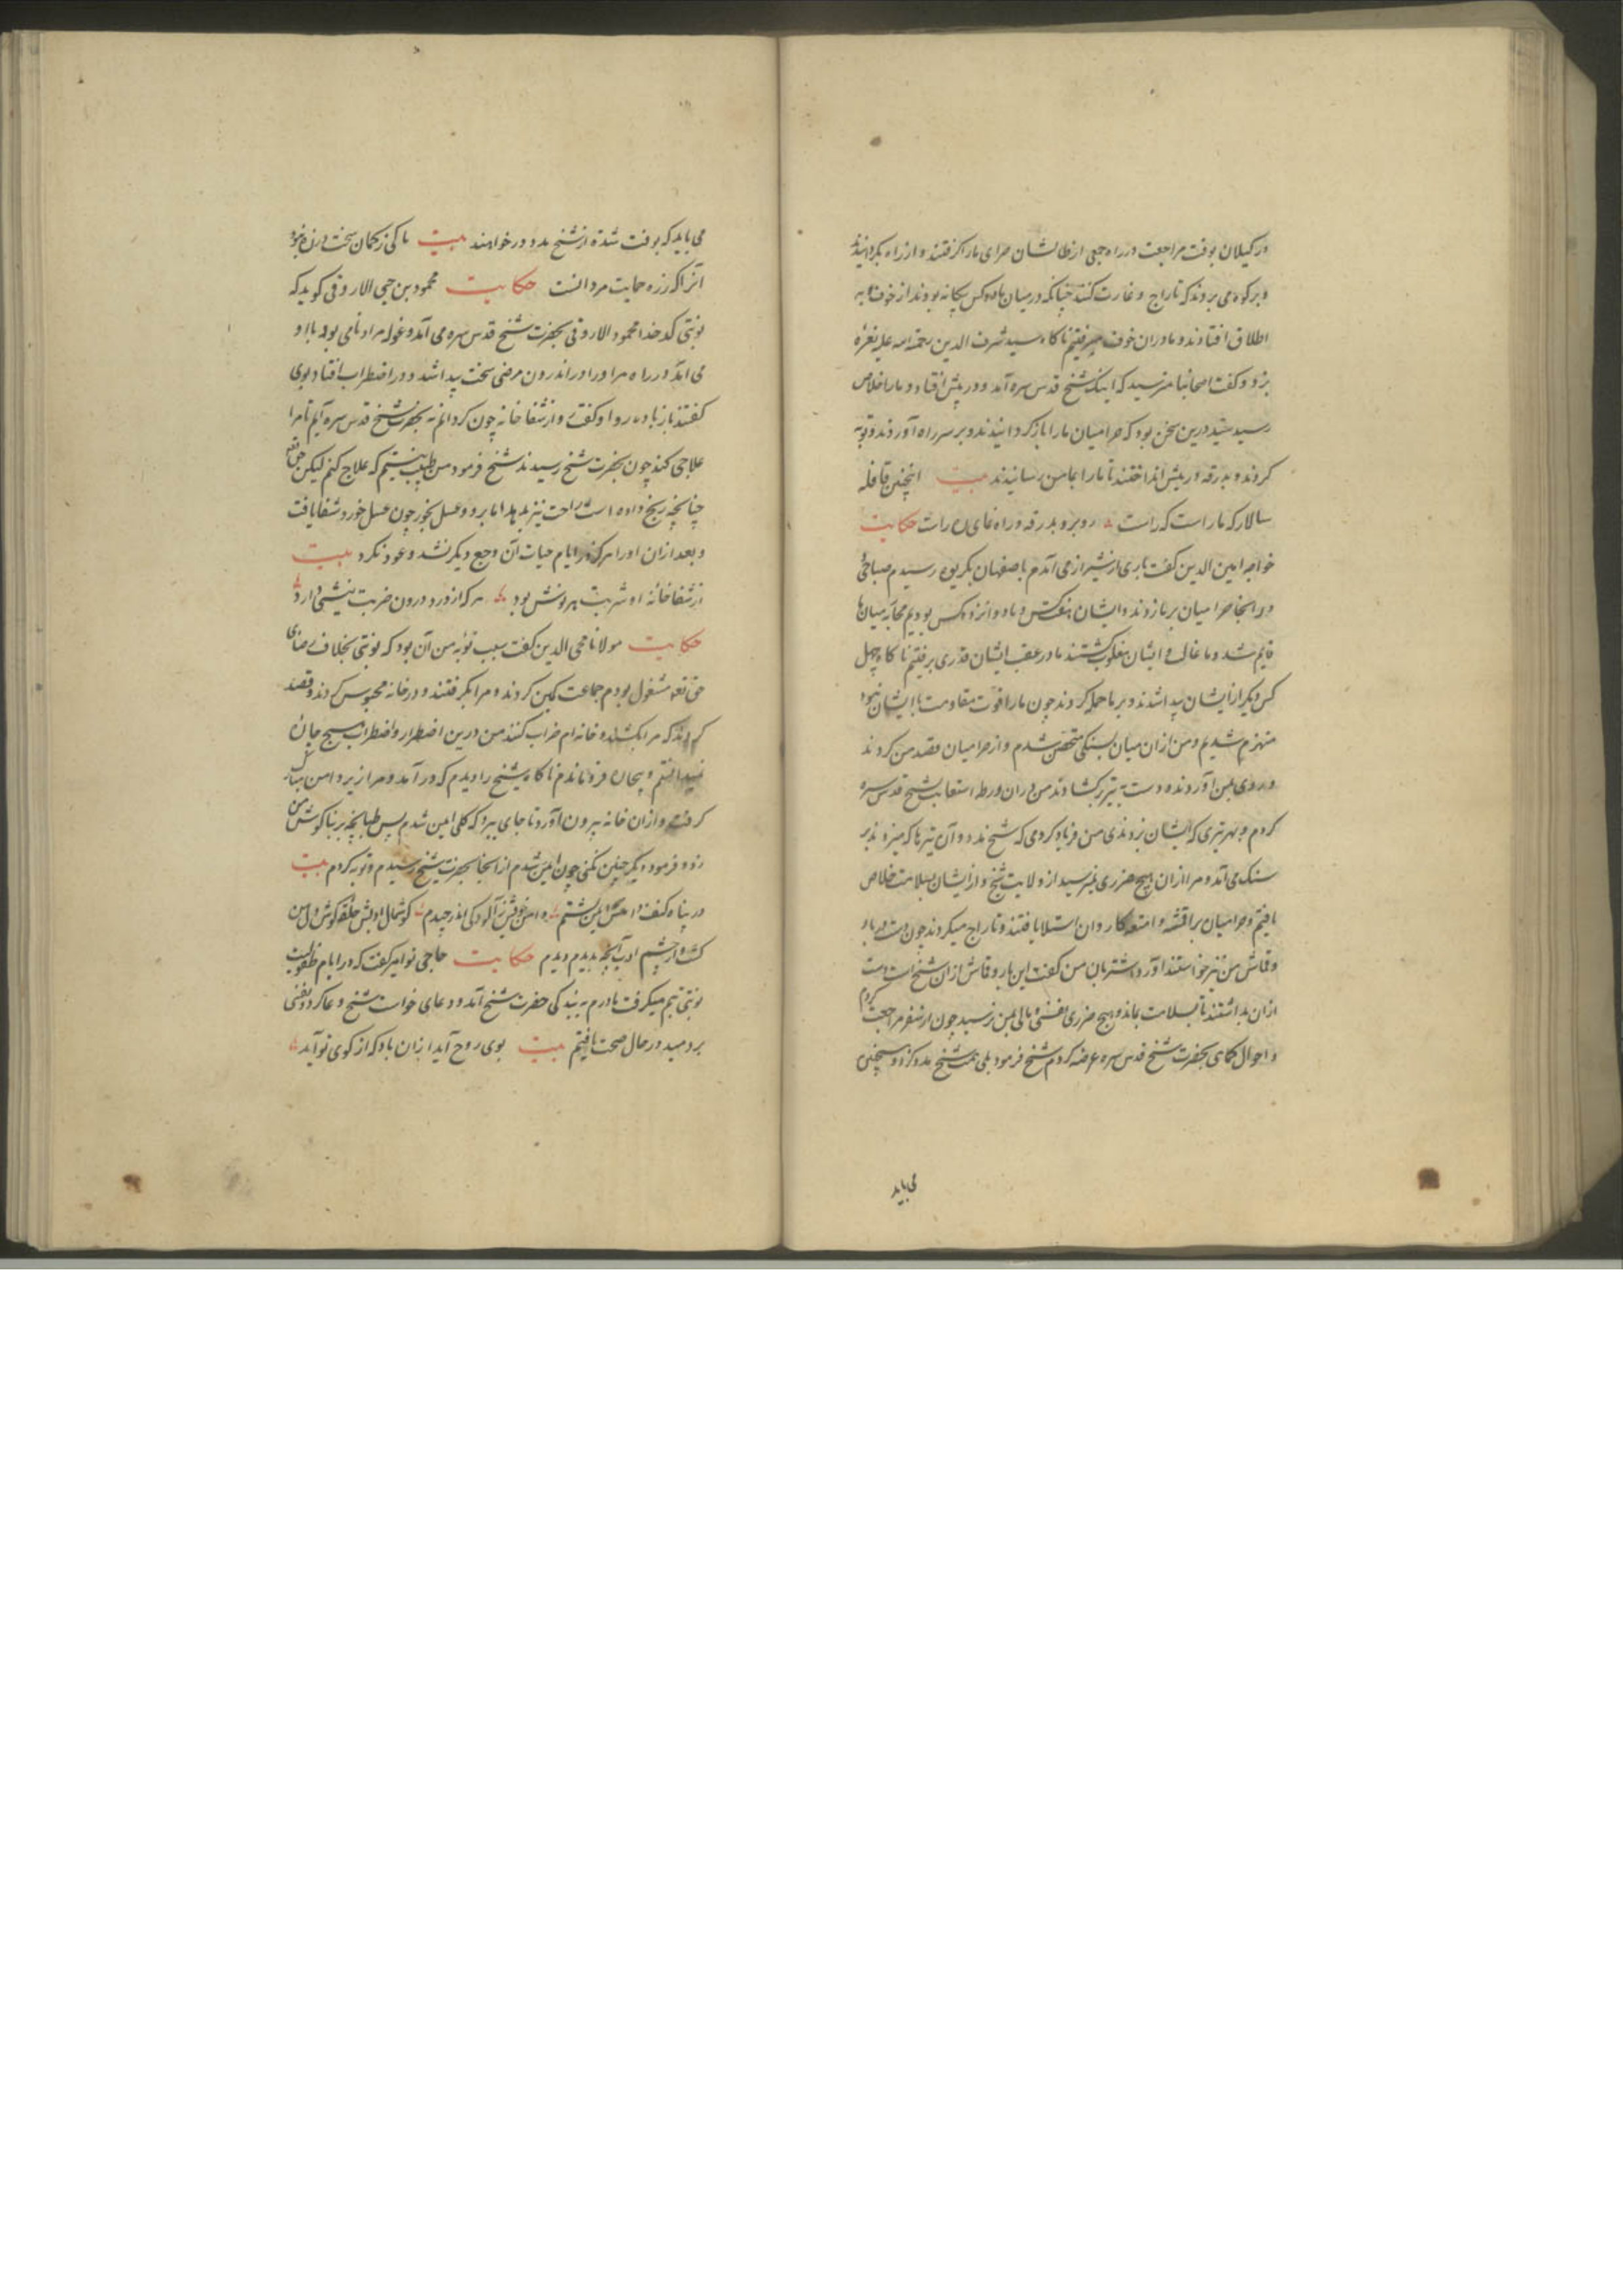 در کیلان بوقت مراجعت در راه جمعی از طالشان حرامی ما را کرفتند و از راه بکردانیدند
و بر کوه می بردند که تاراج و غارت کنند چنانکه در میان ما دو کس بیکانه بودند از خوف به
اطلاق افتادند و ما در ان خوف میرفتیم ناکاه سید شرف الدین رحمة الله علیه نعره
بزد و کفت اصحابنا مترسید که اینک شیخ قدس سره آمد و در پیش افتاد و ما را خلاص
رسید سید درین سخن بود که حرامیان ما را باز کردانیدند و بر سر راه آوردند و توبه
کردند و بدرقه در پیش انداختند تا ما را بمامن رسانیدند بیت اینچنین قافله
سالار که ما راست که راست رو بره بدرقه و راه نمای که راست حکایت
خواجه امین الدین کفت باری از شیراز می آمدم باصفهان بکریوه رسیدم صباحی
در انجا حرامیان بر ما زدند و ایشان هفت کس و ما دوانزده کس بودیم محاربه میان ما
قایم شد و ما غالب و ایشان مغلوب کشتند ما در عقب ایشان قدری برفتیم ناکاه چهل
کس دیکر از ایشان پیدا شدند و بر ما حمله کردند چون ما را قوت مقاومت با ایشان نبود
منهزم شدیم و من از ان میان بسنکی متحصن شدم و از حرامیان قصد من کردند
و روی بمن آوردند و دست به تیر برکشادند من در ان ورطه استعانت بشیخ قدس سره
کردم و بهر تیری که ایشان بزدندی من فریاد کردمی که شیخ مدد و آن تیرها که میزدند بر
سنک می آمد و مرا از ان هیچ ضرری نمیرسید از ولایت شیخ و از ایشان بسلامت خلاص
یافتیم و حرامیان بر اقمشه و امتعه کاروان استیلا یافتند و تاراج میکردند چون دست بر بار
و قماش من نیز خواستند آورد اشتربان من کفت این بار و قماش از ان شیخ است دست
از ان بداشتند تا بسلامت بماند و هیچ ضرری نفسی و مالی بمن نرسید چون از سفر مراجعت کردم
و احوال بحضرت شیخ قدس سره عرضه کردم شیخ فرمود بلی همت شیخ مدد کرد و همچنین
می باید
می باید که بوقت شدة از شیخ مدد در خواهند بیت باکی ز کمان سخت در زه نبود
آنرا که زره حمایت مردانست حکایت محمود بن حجی الاروقی کوید که
نوبتی کدخدا محمود الاروقی بحضرت شیخ قدس سره می آمد و غوله مراد نامی بود با او
می آمد در راه مراد را در اندرون مرضی سخت پیدا شد و در اضطراب افتاد بوی
کفتند باز باید رو او کفت و از شفا خانه چون کردانم به بحضرت شیخ قدس سره آیم تا مرا
علاجی کند چون بحضرت شیخ رسیدند شیخ فرمود من طبیب نیستم که علاج کنم لیکن حق تعالی
چنانچه رنج داده است راحت نیز بدهد اما برو و عسل بخور چون عسل خورد شفا یافت
و بعد از ان او را هرکز در ایام حیات آن وجع دیکر نشد و عود نکرد بیت
از شفا خانه او شربت بهر ونش بود هر که از درد درون ضربت نیشی دارد
حکایت مولانا محی الدین کفت سبب توبه من آن بود که نوبتی بخلاف رضای
حق تعالی مشغول بودم جماعت کمین کردند و مرا بکرفتند و در خانه محبوس کردند و قصد
کردند که مرا بکشند و خانه ام خراب کنند من درین اضطرار و اضطراب هیچ چاره
نمیدانستم و بیچاره فرو ماندم ناکاه شیخ را دیدم که در آمد و مرا زیر دامن مبارک
کرفت و از ان خانه بیرون آورد تا جای ببرد که کلی ایمن شدم پس طپانچه بر بناکوش من
زد و فرمود دیکر چنین نکنی چون ایمن شدم از انجا بحضرت شیخ رسیدم و توبه کردم بیت
در پناه کنف ایمن کشتم دامن خویش ز آلودکی اندر چیدم کوشمال ادبش حلقه کوش دل من
کشت و از چشم ادب آنچه بدیدم دیدم حکایت حاجی نوامیر کفت که در ایام طفولیت
نوبتی تبم میکرفت مادرم به بندکی حضرت شیخ آمد و دعای خواست شیخ دعا کرد و نفسی
بردمید در حال صحت یافتم بیت بوی روح آید از ان باد که از کوی تو آید